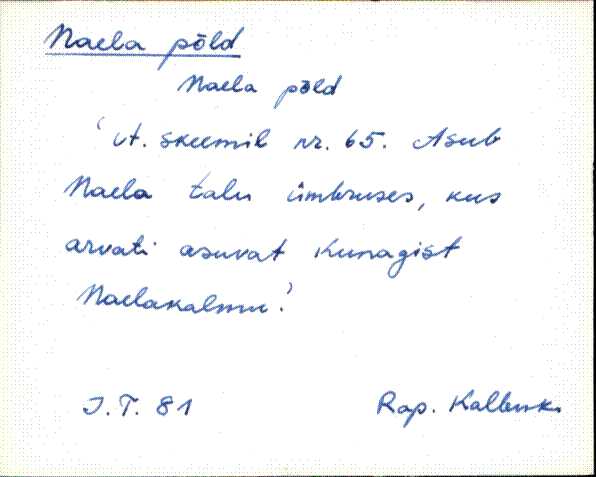 Naela põld
Naela põld
'vt. skeemil nr. 65. Asub
Naela talu ümbruses, kus
arvati asuvat kunagist
Naelakalmu.'
I.T. 81 Rap. Kalbusk.